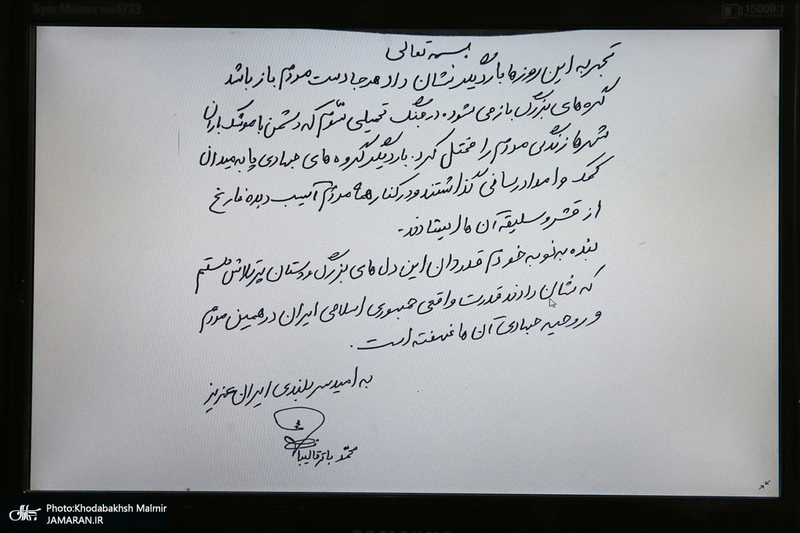 SyncMaster NW1733
15000:1
بسمه تعالی
تجربه این روزها بار دیگر نشان داد هر جا دست مردم باز باشد
گره های بزرگ باز می شود. در جنگ تحمیلی سوم که دشمن با موشک باران
شهرها زندگی مردم را مختل کرد. بار دیگر گروه های جهادی پا به میدان
کمک و امداد رسانی گذاشتند و در کنار همه مردم آسیب دیده فارغ
از قشر و سلیقه آن ها ایستادند.
بنده به نوبه خودم قدردان این دل های بزرگ و دستان پرتلاش هستم
که نشان دادند قدرت واقعی جمهوری اسلامی ایران در همین مردم
و روحیه جهادی آن ها نهفته است.
به امید سربلندی ایران عزیز
محمد باقر قالیباف
جماران
Photo:Khodabakhsh Malmir
JAMARAN.IR
SAMSUNG